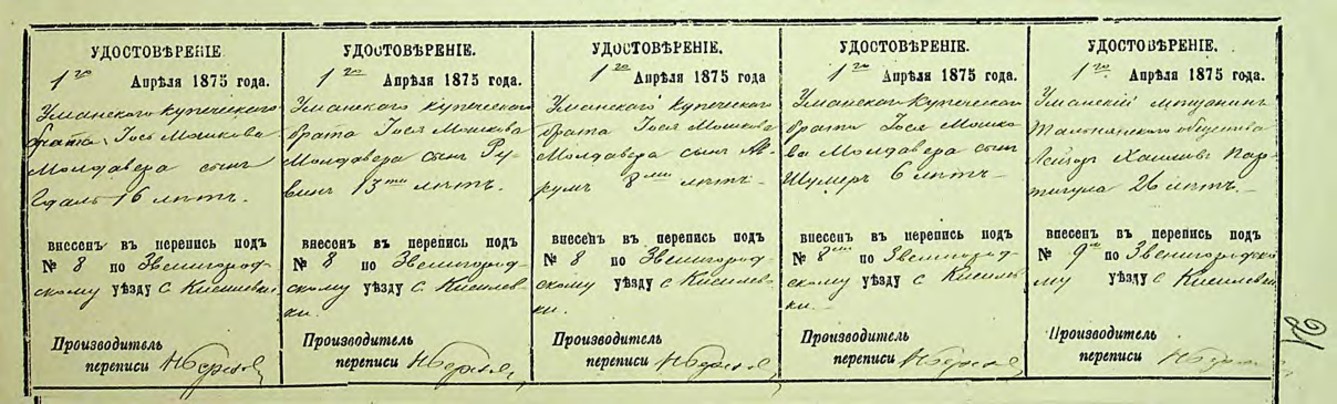 УДОСТОВѢРЕНІЕ
1го Апрѣля 1875 года.
Уманскаго купеческаго
брата Іося Мошкова
Молдавера сынъ
16 лѣтъ.
внесенъ въ перепись подъ
№ 8 по Звенигород-
скому уѣзду с. Кисилевки
Производитель
переписи
УДОСТОВѢРЕНІЕ.
1го Апрѣля 1875 года.
Уманскаго купеческаго
брата Іося Мошкова
Молдавера сынъ Ру-
винъ 13ти лѣтъ.
внесенъ въ перепись подъ
№ 8 по Звенигород-
скому уѣзду с. Кисилев-
ки.
Производитель
переписи
УДОСТОВѢРЕНІЕ.
1го Апрѣля 1875 года
Уманскаго купеческаго
брата Іося Мошкова
Молдавера сынъ
8ми лѣтъ
внесенъ въ перепись подъ
№ 8 по Звенигород-
скому уѣзду с. Кисилев-
ки.
Производитель
переписи
УДОСТОВѢРЕНІЕ.
1го Апрѣля 1875 года.
Уманскаго купеческаго
брата Іося Мошко
ва Молдавера сынъ
Шулимъ 6 лѣтъ
внесенъ въ перепись подъ
№ 8 по Звенигород-
скому уѣзду с. Кисилев
ки.
Производитель
переписи
УДОСТОВѢРЕНІЕ.
1го Апрѣля 1875 года.
Уманскій мѣщанинъ
Тальнянскаго общества
Лейзоръ
26 лѣтъ.
внесенъ въ перепись подъ
№ 9 по Звенигородско
му уѣзду с. Кисилевки
Производитель
переписи